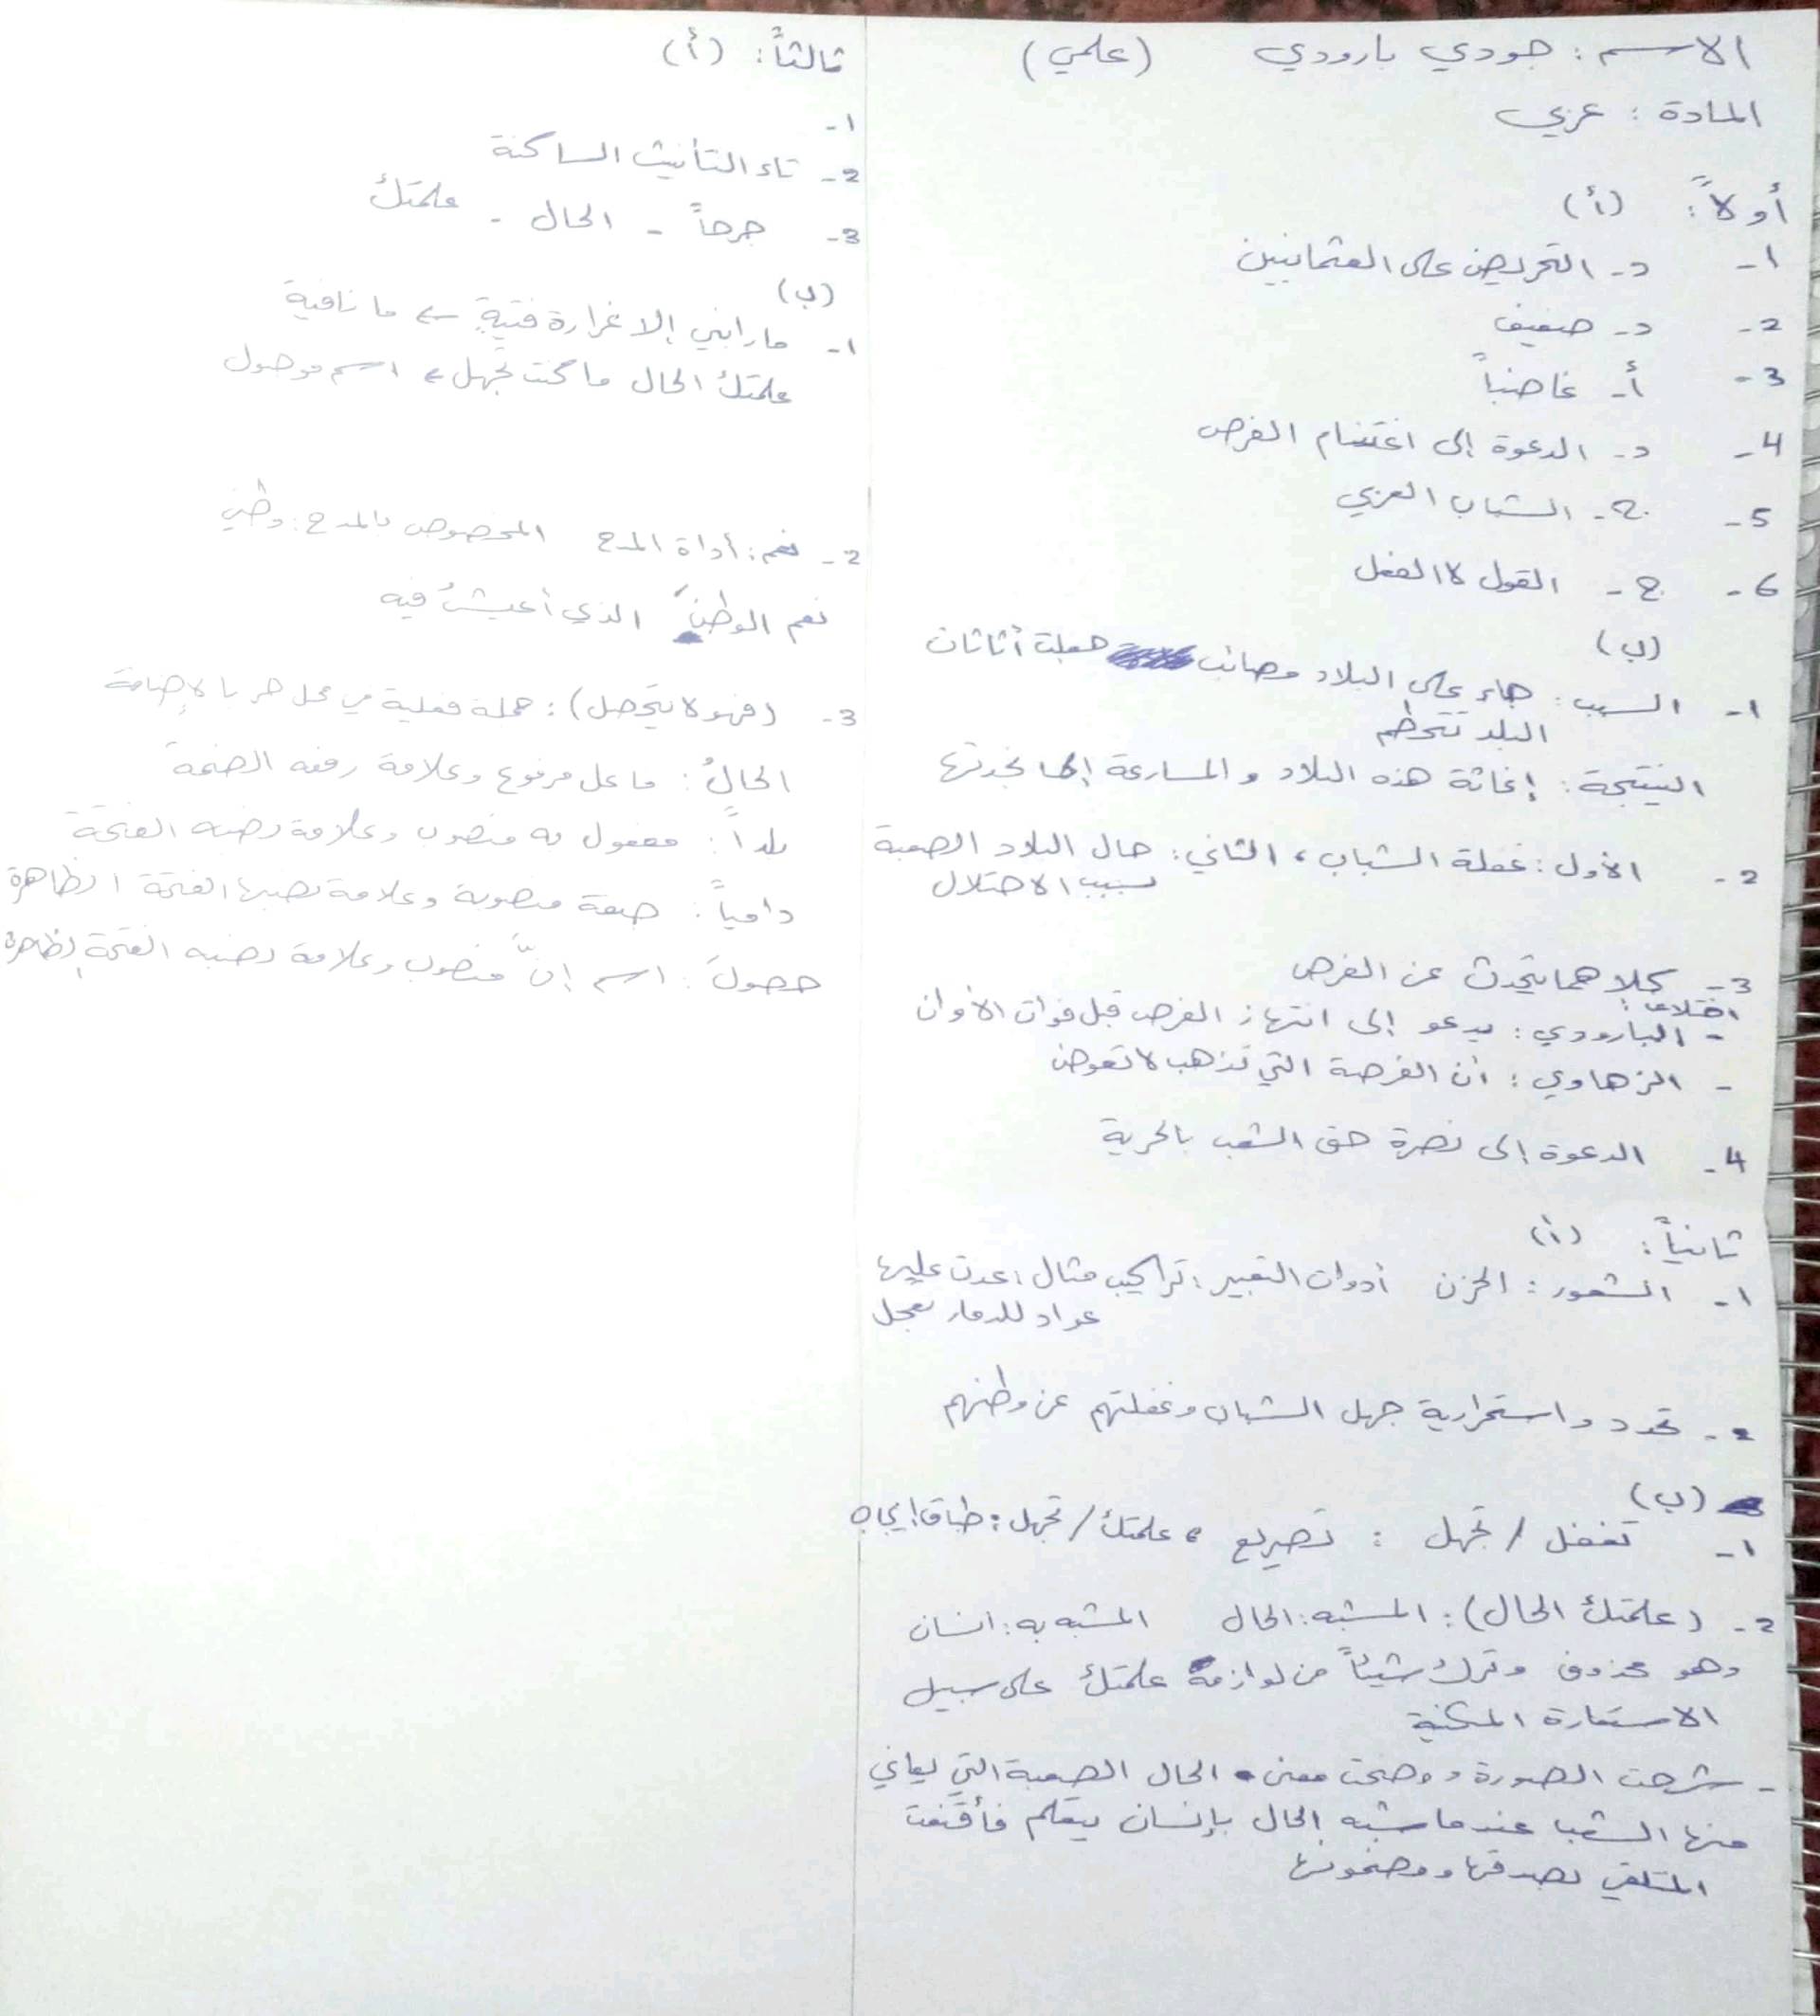 الاسم : جودي بارودي (علمي)
المادة : عربي
أولاً: (أ)
١- د- التحريض على العثمانيين
2- د- ضعيف
3- أ- غاضباً
4- د- الدعوة إلى اغتنام الفرص
5- ج- الشباب العربي
6- ج- القول لا الفعل
(ب)
١- السبب : جاء على البلاد مصائب جعلت أثاثات
البلد تتحطم
النتيجة : إغاثة هذه البلاد والمسارعة إلى نجدتها
2- الأول : غفلة الشباب ، الثاني : حال البلاد الصعبة
بسبب الاحتلال
3- كلاهما يتحدث عن الفرص
اختلاف :
- البارودي : يدعو إلى انتهاز الفرص قبل فوات الأوان
- الزهاوي : أن الفرصة التي تذهب لا تعوض
4- الدعوة إلى نصرة حق الشعب بالحرية
ثانياً : (أ)
١- الشعور : الحزن أدوات التعبير : تراكيب مثال : عدت عليها
عواد للدمار تعجل
2- تجدد واستمرارية جهل الشباب وغفلتهم عن وطنهم
(ب)
١- تغفل / تجهل : تصريع ، علمتك / تجهل : طباق إيجاب
2- (علمتك الحال) : المشبه : الحال المشبه به : انسان
وهو محذوف وترك شيئاً من لوازمه علمتك على سبيل
الاستعارة المكنية
- شرحت الصورة ووضحت معنى الحال الصعبة التي يعاني
منها الشعب عندما شبه الحال بإنسان يتعلم فأقنعت
المتلقي بصدقها ومضمونها
ثالثاً : (أ)
١-
2- تاء التأنيث الساكنة
3- جرحاً - الحال - علمتك
(ب)
١- ما رابني إلا غرارة فتية ← ما نافية
علمتك الحال ما كنت تجهل ← اسم موصول
2- نعم : أداة المدح المخصوص بالمدح : وطني
نعم الوطن الذي أعيش فيه
3- (فهو لا يتحصل) : جملة فعلية في محل جر بالإضافة
الحالُ : فاعل مرفوع وعلامة رفعه الضمة
بلداً : مفعول به منصوب وعلامة نصبه الفتحة
دامياً : صفة منصوبة وعلامة نصبها الفتحة الظاهرة
حصولَ : اسم إنَّ منصوب وعلامة نصبه الفتحة الظاهرة